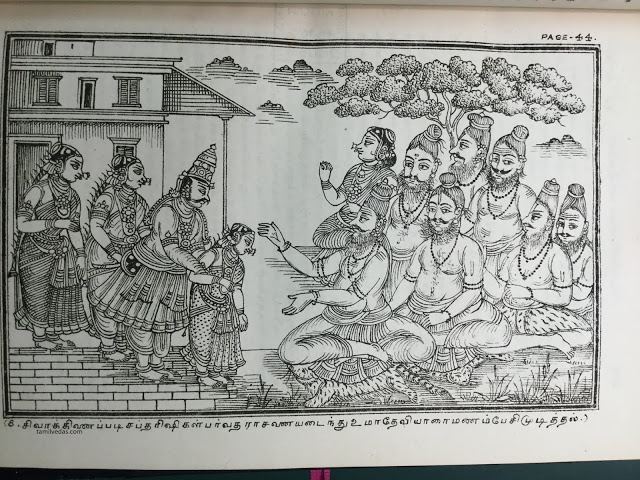 PAGE-44.
(6. சிவாக்கினைப்படி சப்தரிஷிகள் பர்வதராசனையடைந்து உமாதேவியாரை மணம்பேசிமுடித்தல்.)
tamilvedas.com